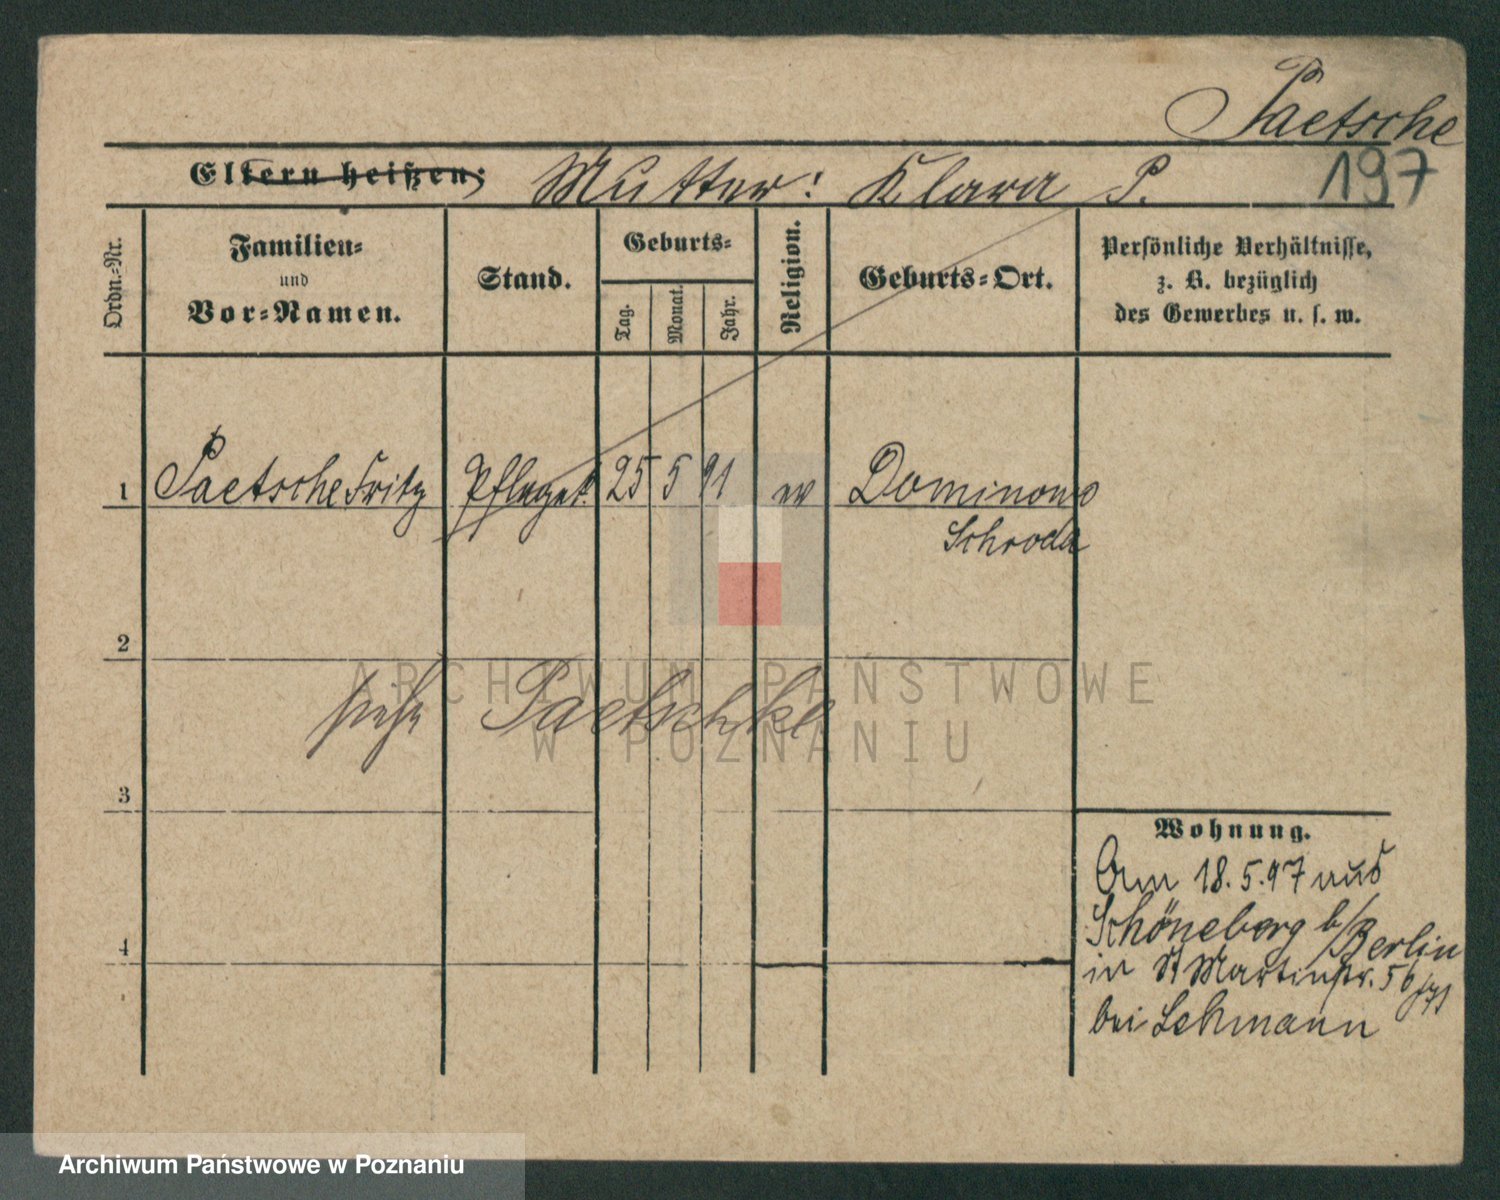 Paetsche
197
Eltern heißen: Mutter: Klara P.
Ordn.-Nr.
Familien-
und
Vor-Namen.
Stand.
Geburts-
Tag.
Monat.
Jahr.
Religion.
Geburts-Ort.
Persönliche Verhältnisse,
z. B. bezüglich
des Gewerbes u. s. w.
1 Paetsche Fritz Pflegek. 25 5 91 ev Dominowo
Schroda
2
siehe Paetschke
3
4
Wohnung.
Am 18.5.97 aus
Schöneberg b/Berlin
in St Martinstr. 56
bei Lehmann
ARCHIWUM PAŃSTWOWE
W POZNANIU
Archiwum Państwowe w Poznaniu